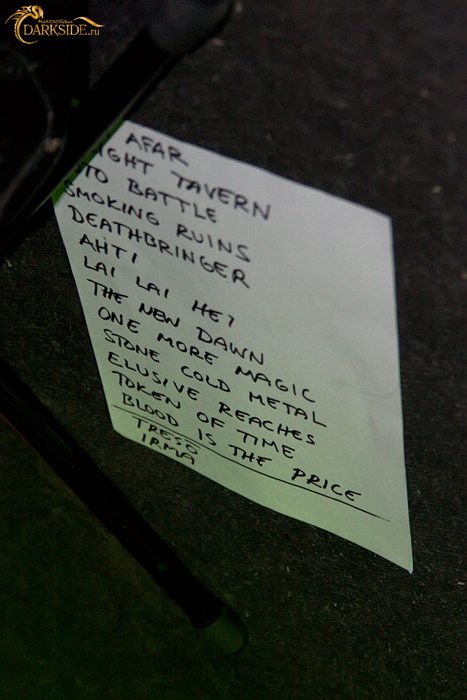 DARKSIDE.ru
AFAR
IGHT TAVERN
TO BATTLE
SMOKING RUINS
DEATHBRINGER
AHTI
LAI LAI HEI
THE NEW DAWN
ONE MORE MAGIC
STONE COLD METAL
ELUSIVE REACHES
TOKEN OF TIME
BLOOD IS THE PRICE
TRESO
IRMA